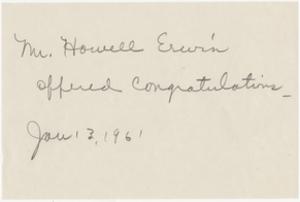 Mr. Howell Erwin
offered Congratulations_
Jan 13, 1961